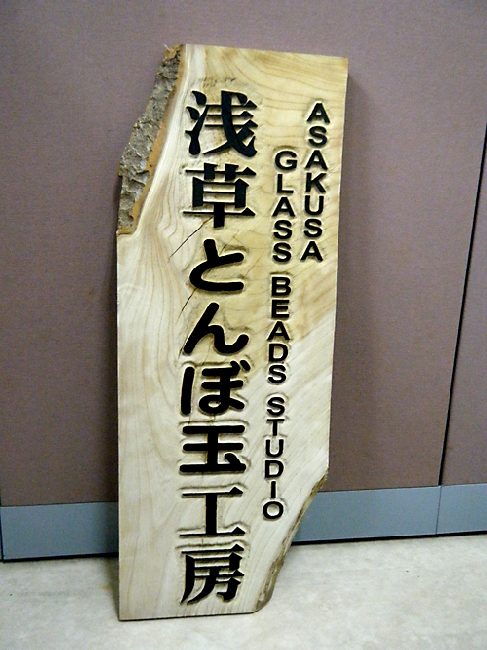 ASAKUSA
GLASS BEADS STUDIO
浅草とんぼ玉工房